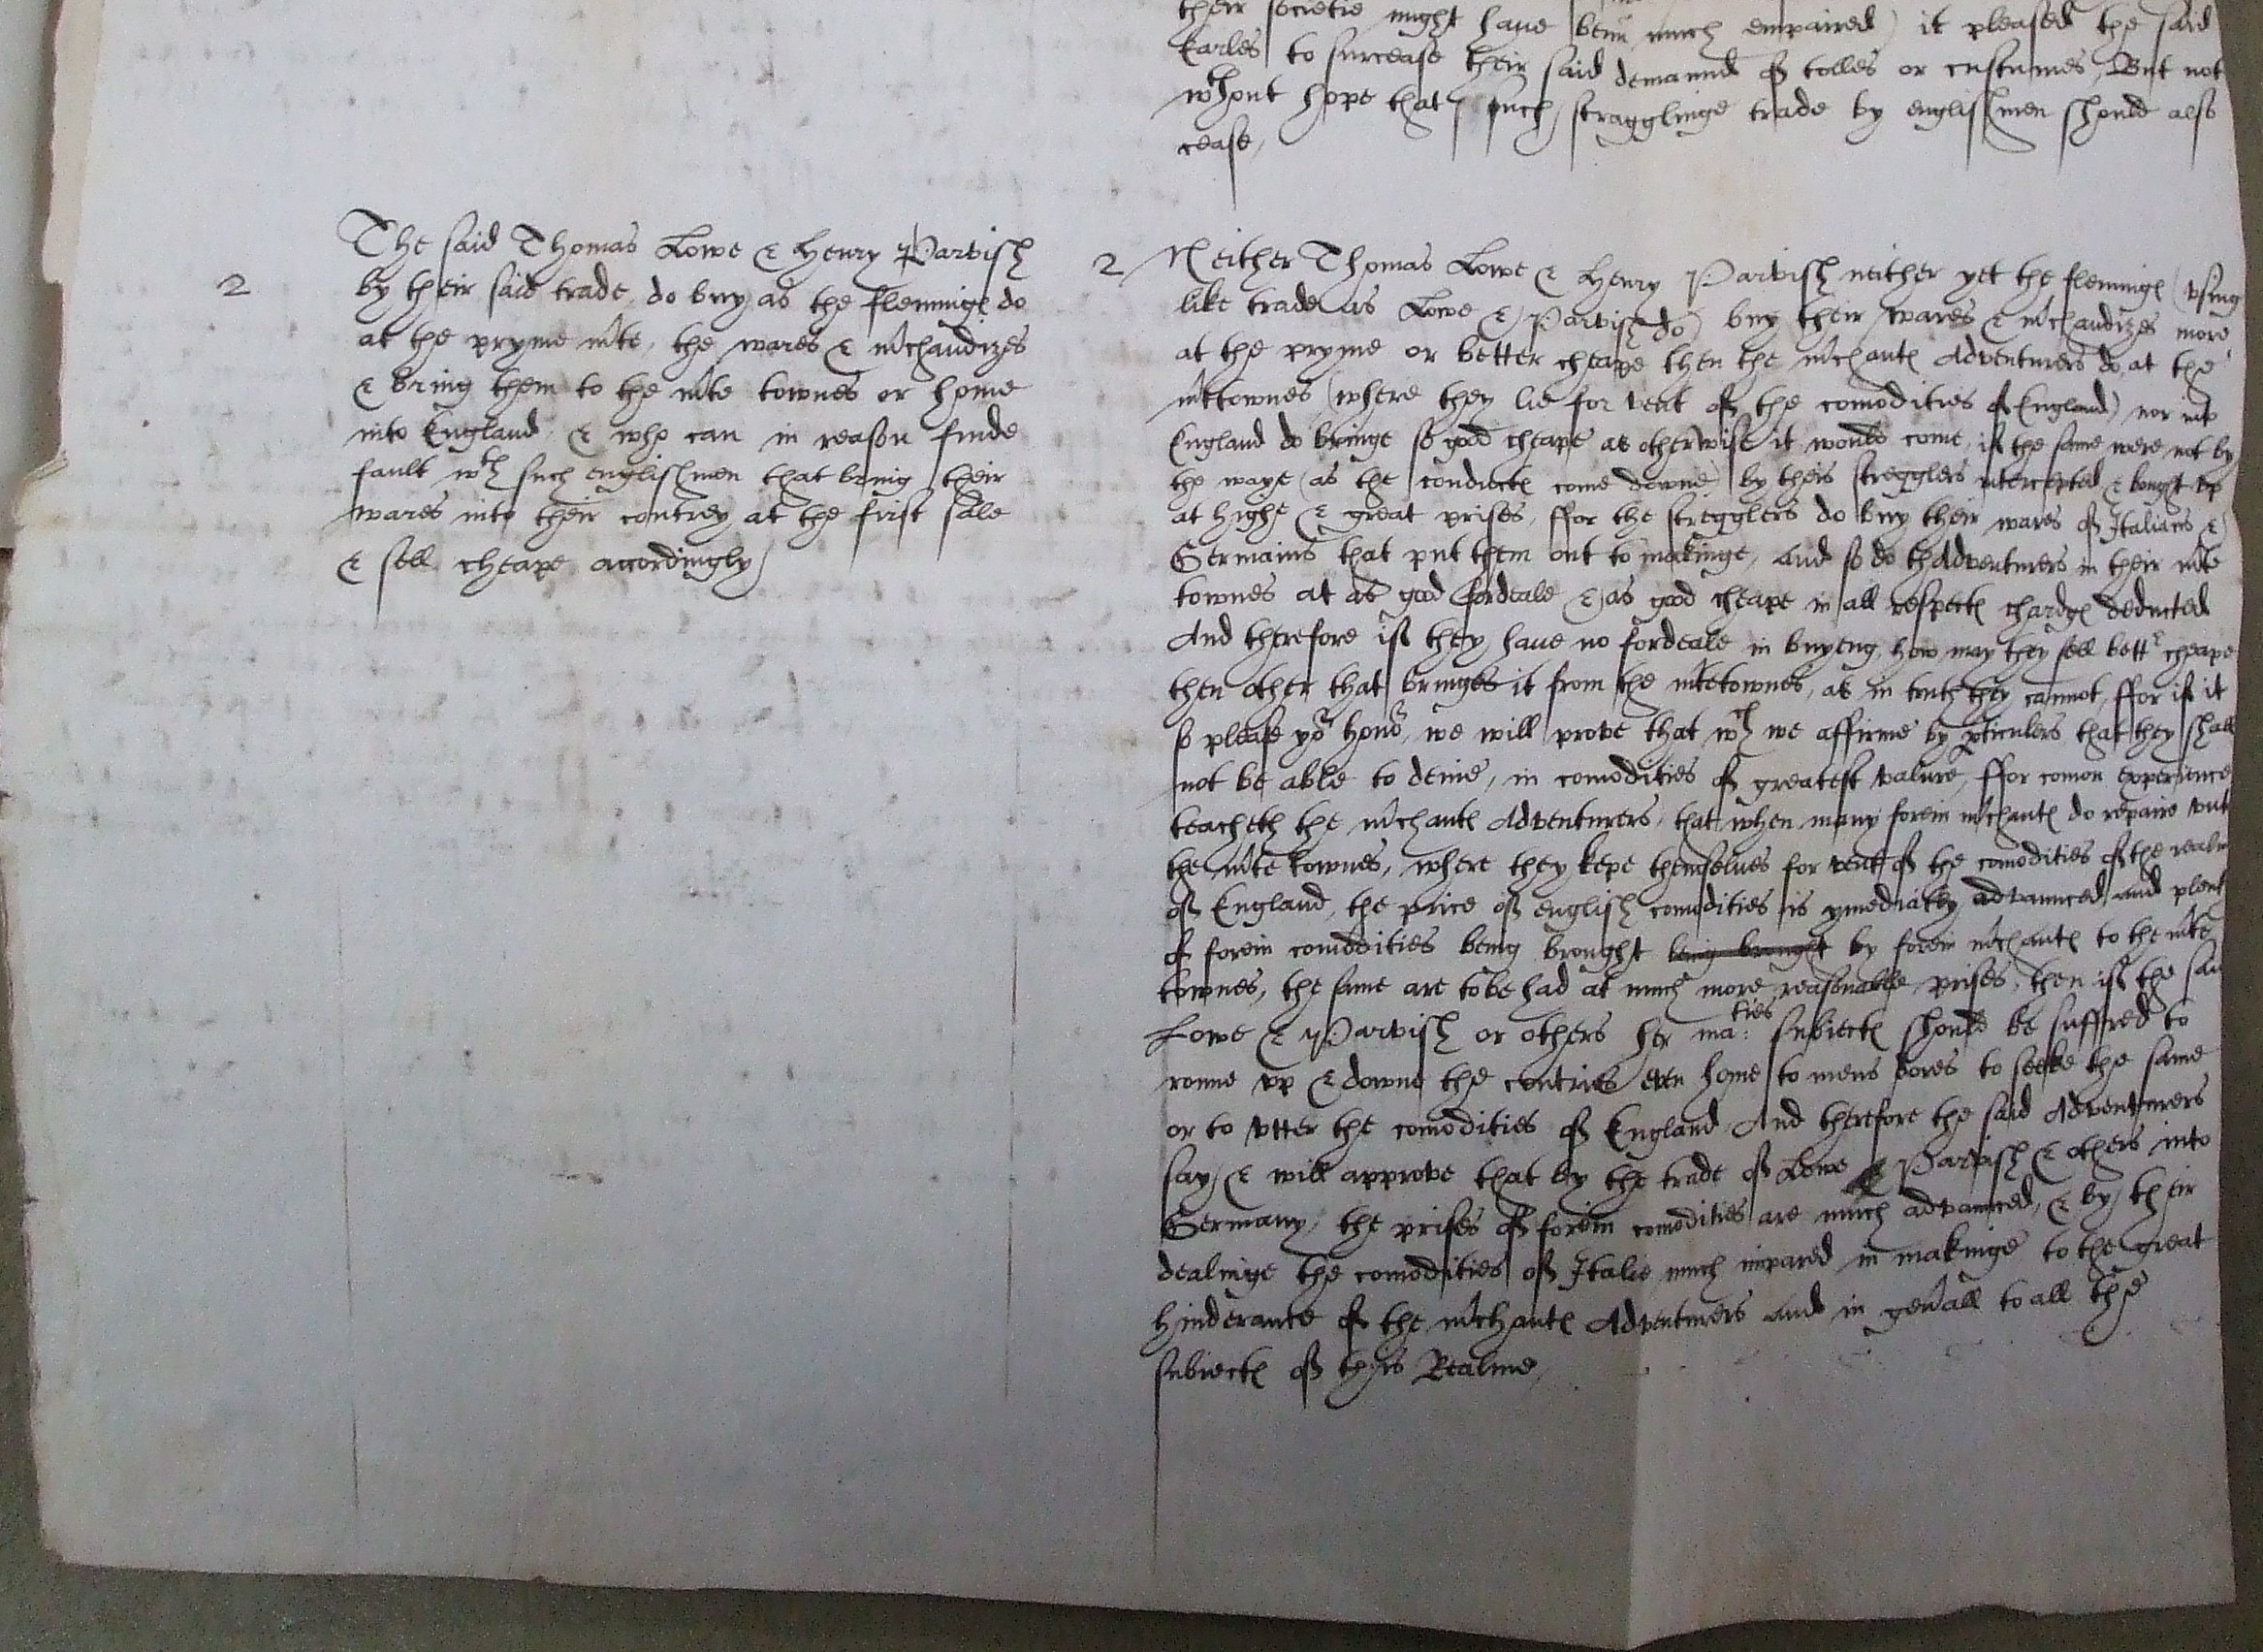 their societie might haue bein much empaired) it pleased the said
Earles to surcease their said demaund of tolles or custumes, But not
wthout hope that such stragglinge trade by englishmen should also
cease,
2
The said Thomas Lowe & Henry Parvish
by their said trade, do buy as the fleminges do
at the pryme mkte, the wares & mchaudizes
& bring them to the mkte townes or home
into England, & who can in reason finde
fault wth such englishmen that bring their
wares into their contrey at the first sale
& sell cheape accordingly
2 Neither Thomas Lowe & Henry Parvish neither yet the fleminges (vsing
like trade as Lowe & Parvish do) buy their wares & mchaudizes more
at the pryme or better cheape then the mchantes Adventurers do, at the
mktownes (where they lie for vent of the comodities of England) nor into
England do bringe so good cheape as otherwise it would come, if the same were not by
the waye (as the conductes come downe) by theis stregglers intercepted & bought vp
at highe & great prises, ffor the stregglers do buy their wares of Italians &
Germains that put them out to makinge, and so do thAdventurers in their mkte
townes at as good fordeale & as good cheape in all respectes chardges deducted
And therefore if they haue no fordeale in buyeng, how may they sell bettr cheape
then other that bringes it from the mktetownes, as in truth they cannot, ffor if it
so please yor honor, we will prove that wch we affirme by pticulers that they shall
not be able to denie, in comodities of greatest valure, ffor comon experience
teacheth the mchantes Adventurers, that when many forein mchantes do repaire vnt
the mkte townes, where they kepe themselues for vent of the comodities of the realm
of England, the price of english comodities is ymediatly advaunced and plent
of forein comodities being brought being brought by forein mchantes to the mkte
townes, the same are to be had at much more reasonable prises, then if the sai
Lowe & Parvish or others her ma:ties subiectes should be suffred to
ronne vp & downe the contries even home to mens dores to seeke the same
or to vtter the comodities of England And therefore the said Adventurers
say, & will approve that by the trade of Lowe & Parvish & others into
Germany, the prises of forein comodities are much advaunced, & by their
dealinge the comodities of Italie much impared in makinge to the great
hinderance of the mchantes Adventurers and in genall to all the
subiectes of this Realme,